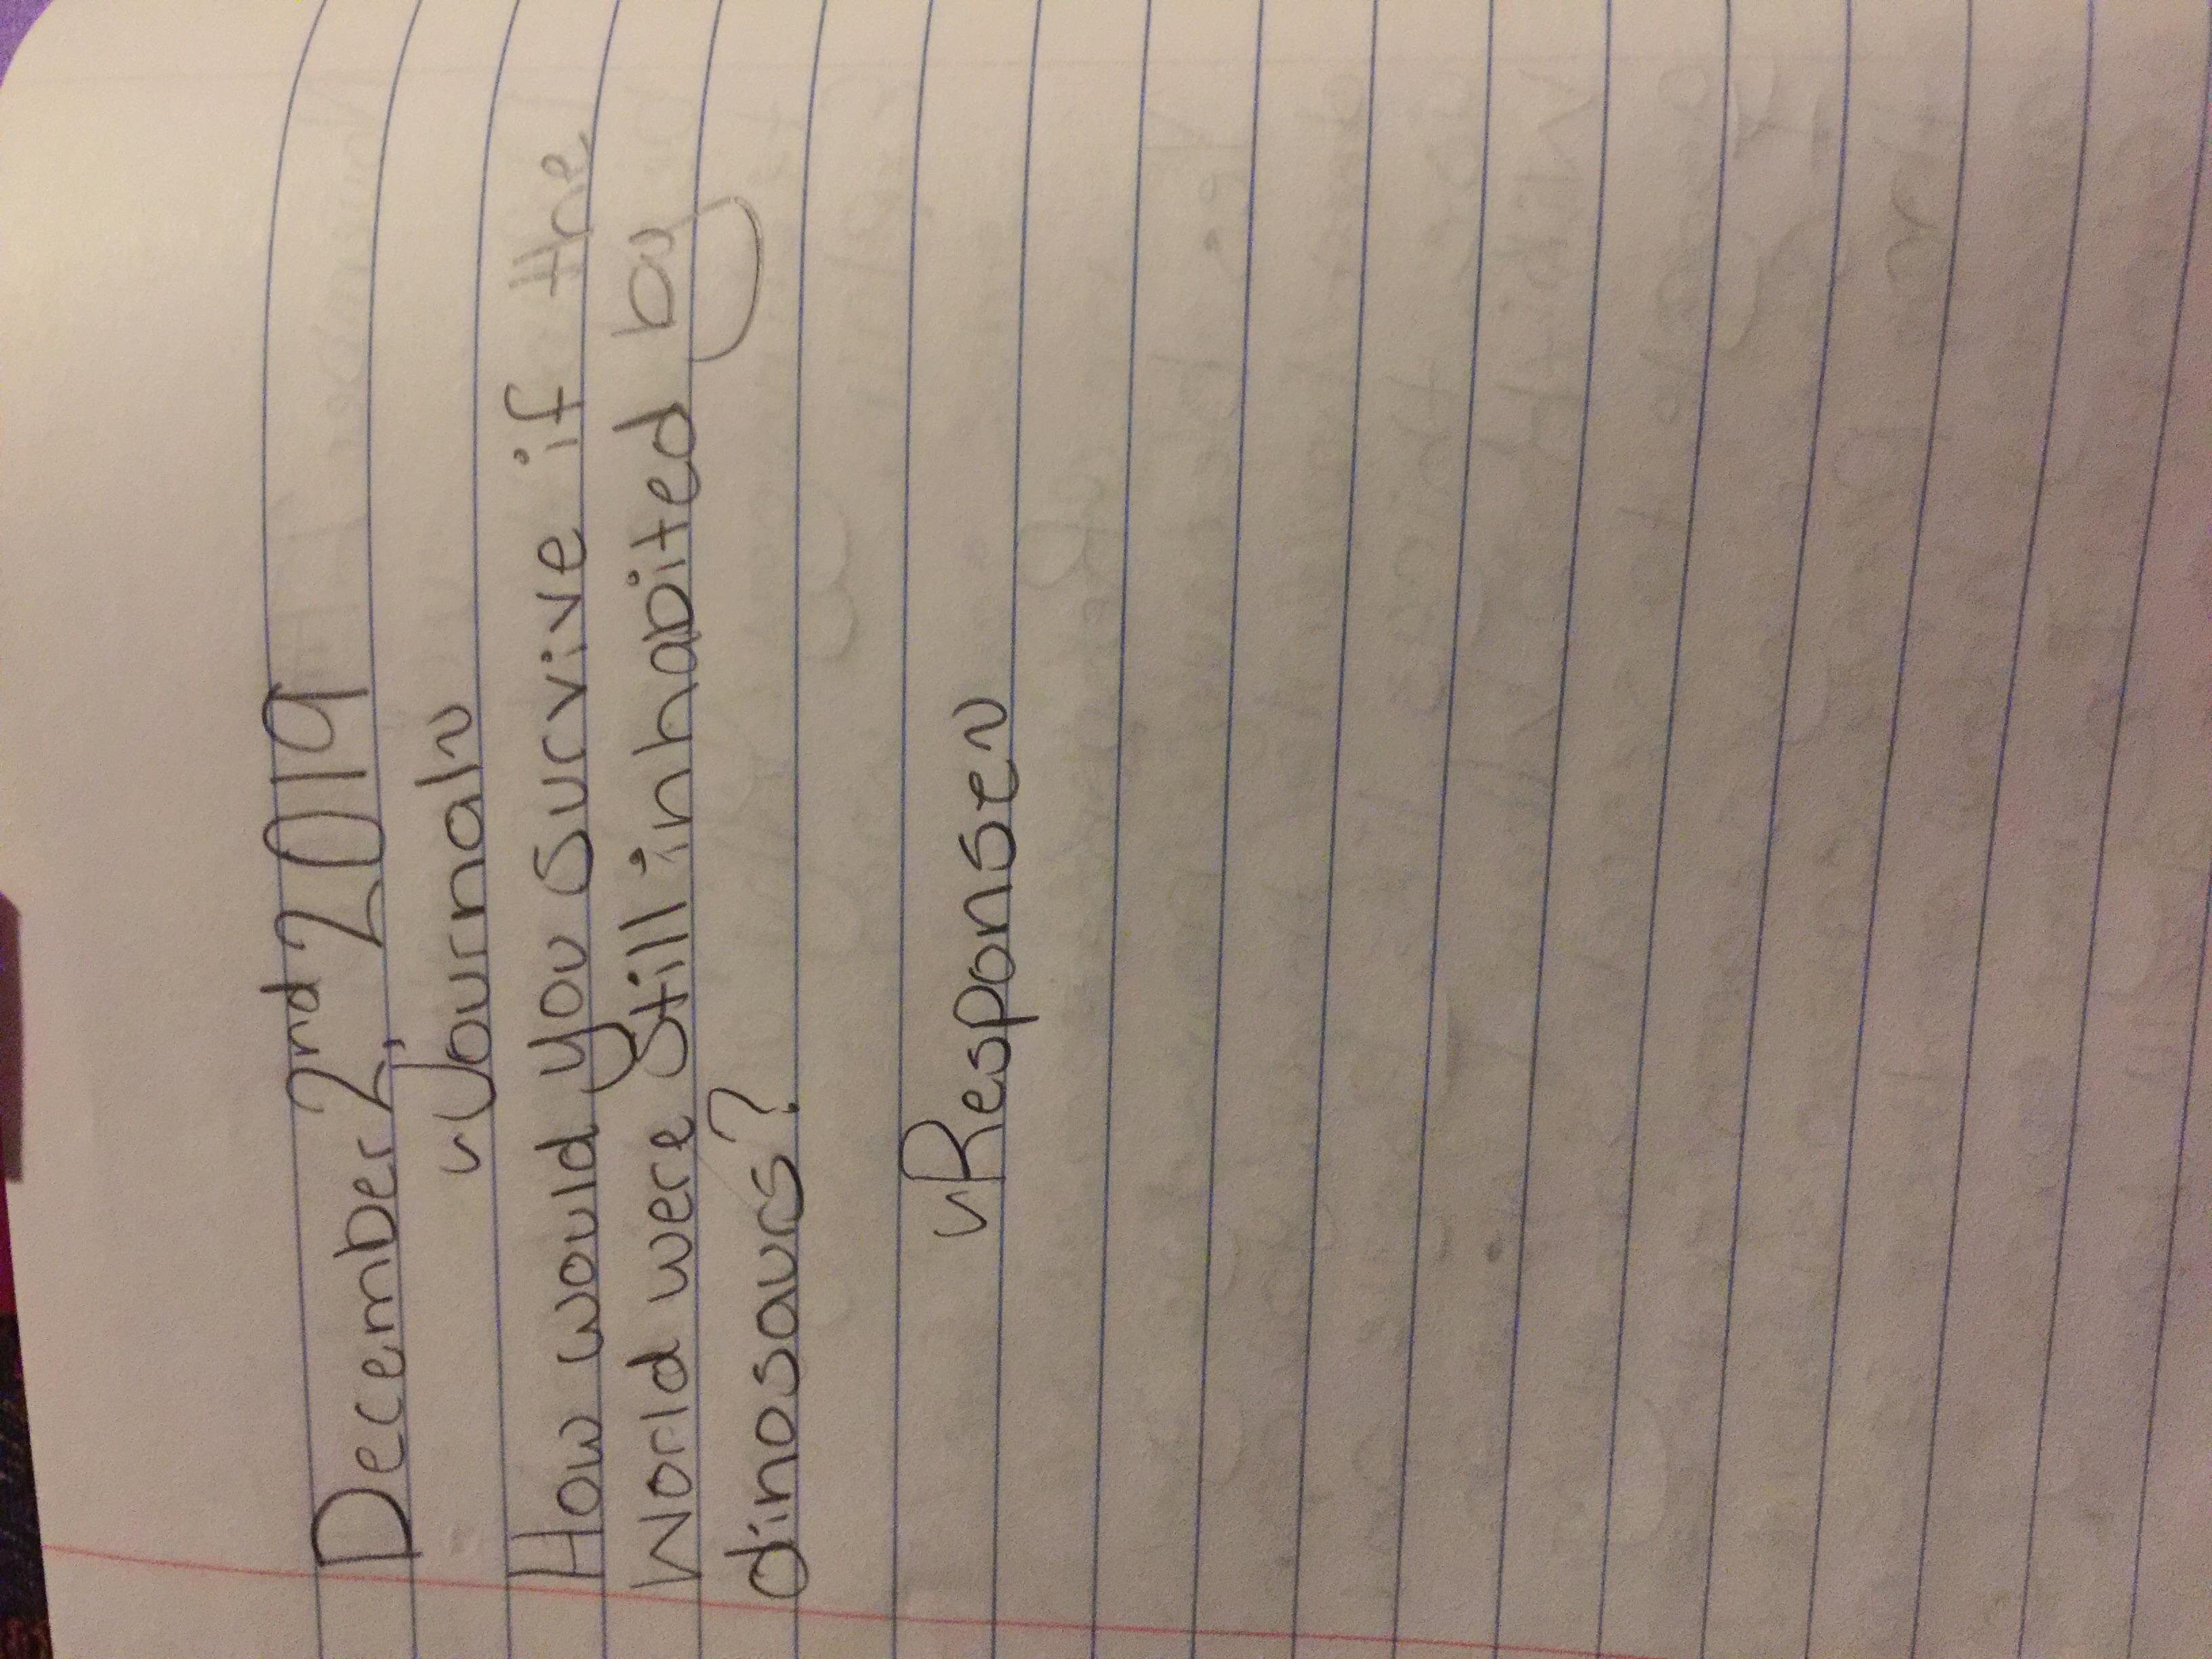 December 2nd, 2019
~Journal~
How would you survive if the
World were still inhabited by
dinosaurs?
~Response~